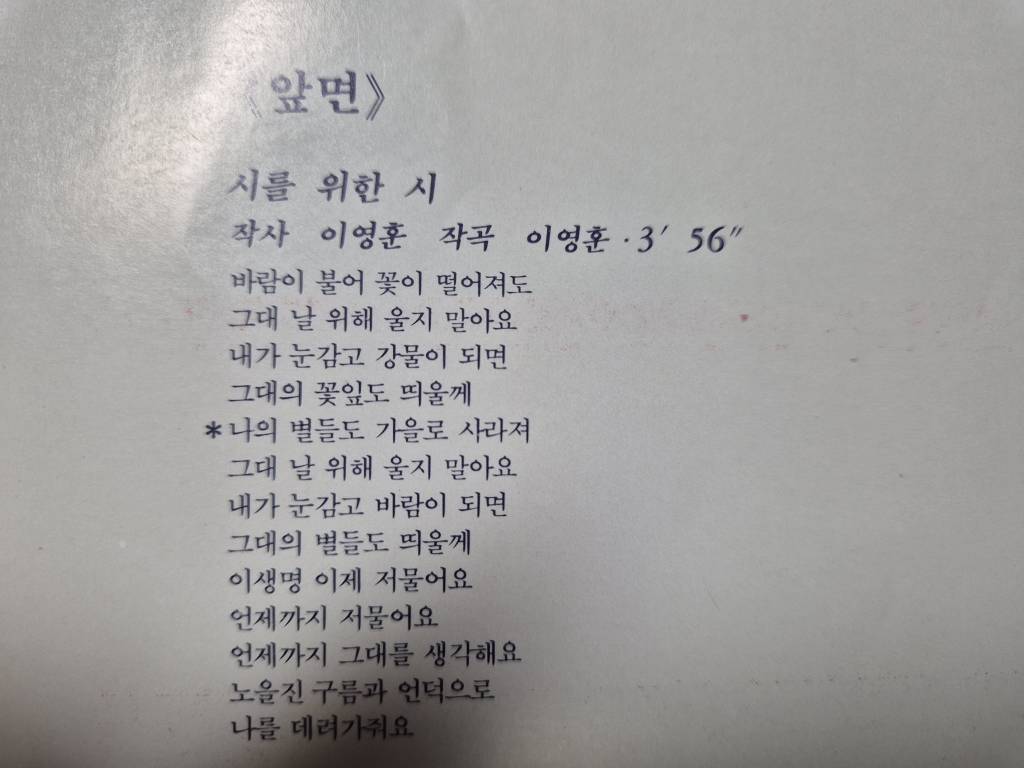 《앞면》
시를 위한 시
작사 이영훈 작곡 이영훈 · 3′ 56″
바람이 불어 꽃이 떨어져도
그대 날 위해 울지 말아요
내가 눈감고 강물이 되면
그대의 꽃잎도 띄울께
*나의 별들도 가을로 사라져
그대 날 위해 울지 말아요
내가 눈감고 바람이 되면
그대의 별들도 띄울께
이생명 이제 저물어요
언제까지 저물어요
언제까지 그대를 생각해요
노을진 구름과 언덕으로
나를 데려가줘요